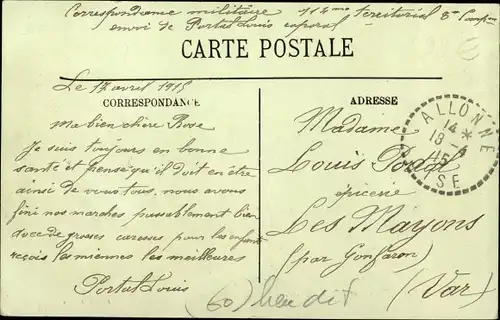 Correspondance militaire 112me territorial 8e Comp
envoi de Portal Louis caporal
CARTE POSTALE
Le 17 avril 1915
CORRESPONDANCE
Ma bien chère Rose
Je suis toujours en bonne
santé et pense qu'il doit en être
ainsi de vous tous, nous avons
fini nos marches passablement bien
de grosses caresses pour les enfants
reçois les miennes les meilleures
Portal Louis
ADRESSE
Madame
Louis Portal
épicerie
Les Mayons
(par Gonfaron)
(Var)
ALLONNE
14 *
18 - 4
15
SE
(60)